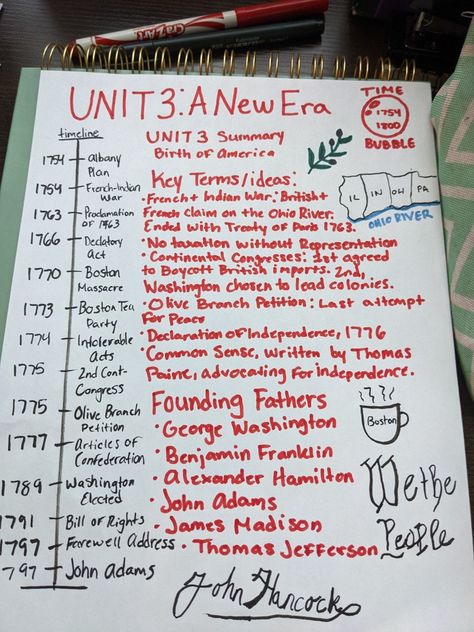 CRAZART
UNIT3: A New Era
TIME
1754
1800
BUBBLE
timeline
1754 - Albany
Plan
1754 - French-Indian
War
1763 - Proclamation
of 1963
1766 - Declatory
Act
1770 - Boston
Massacre
1773 - Boston Tea
Party
1774 - Intolerable
Acts
1775 - 2nd Cont-
Congress
1775 - Olive Branch
Petition
1777 - Articles of
Confederation
1789 - Washington
Elected
1791 - Bill of Rights
1797 - Farewell Address
797 - John Adams
UNIT 3 Summary
Birth of America
Key Terms/ideas:
• French + Indian War: British +
French claim on the Ohio River.
Ended with Treaty of Paris 1763.
• No taxation without Representation
• Continental Congresses: 1st agreed
to Boycott British imports. 2nd,
Washington chosen to lead colonies.
• Olive Branch Petition: Last attempt
for Peace
• Declaration of Independence, 1776
• Common Sense, written by Thomas
Paine, advocating for independence.
IL IN OH PA
OHIO RIVER
Founding Fathers
• George Washington
• Benjamin Franklin
• Alexander Hamilton
• John Adams
• James Madison
• Thomas Jefferson
Boston
We the
People
John Hancock